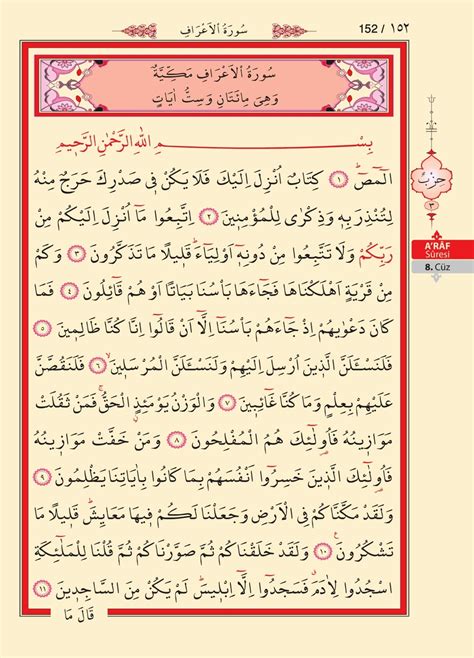 سُورَةُ الْاَعْرَافِ
152 / ١٥٢
سُورَةُ الْاَعْرَافِ مَكِّيَّةٌ
وَهِىَ مِائَتَانِ وَسِتُّ اٰيَاتٍ
بِسْمِ اللّٰهِ الرَّحْمٰنِ الرَّحِيمِ
الٓمٓصٓ ١ كِتَابٌ اُنْزِلَ اِلَيْكَ فَلَا يَكُنْ فِى صَدْرِكَ حَرَجٌ مِنْهُ
لِتُنْذِرَ بِهٖ وَذِكْرٰى لِلْمُؤْمِنٖينَ ٢ اِتَّبِعُوا مَٓا اُنْزِلَ اِلَيْكُمْ مِنْ
رَبِّكُمْ وَلَا تَتَّبِعُوا مِنْ دُونِهٖٓ اَوْلِيَٓاءَ قَلٖيلًا مَا تَذَكَّرُونَ ٣ وَكَمْ
مِنْ قَرْيَةٍ اَهْلَكْنَاهَا فَجَٓاءَهَا بَأْسُنَا بَيَاتًا اَوْ هُمْ قَٓائِلُونَ ٤ فَمَا
كَانَ دَعْوٰيهُمْ اِذْ جَٓاءَهُمْ بَأْسُنَٓا اِلَّٓا اَنْ قَالُٓوا اِنَّا كُنَّا ظَالِمٖينَ ٥
فَلَنَسْـَٔلَنَّ الَّذٖينَ اُرْسِلَ اِلَيْهِمْ وَلَنَسْـَٔلَنَّ الْمُرْسَلٖينَ ٦ فَلَنَقُصَّنَّ
عَلَيْهِمْ بِعِلْمٍ وَمَا كُنَّا غَٓائِبٖينَ ٧ وَالْوَزْنُ يَوْمَئِذٍ الْحَقُّ فَمَنْ ثَقُلَتْ
مَوَازٖينُهُ فَاُولٰٓئِكَ هُمُ الْمُفْلِحُونَ ٨ وَمَنْ خَفَّتْ مَوَازٖينُهُ
فَاُولٰٓئِكَ الَّذٖينَ خَسِرُٓوا اَنْفُسَهُمْ بِمَا كَانُوا بِاٰيَاتِنَا يَظْلِمُونَ ٩
وَلَقَدْ مَكَّنَّاكُمْ فِى الْاَرْضِ وَجَعَلْنَا لَكُمْ فٖيهَا مَعَايِشَ قَلٖيلًا مَا
تَشْكُرُونَ ١٠ وَلَقَدْ خَلَقْنَاكُمْ ثُمَّ صَوَّرْنَاكُمْ ثُمَّ قُلْنَا لِلْمَلٰٓئِكَةِ
اسْجُدُوا لِاٰدَمَ فَسَجَدُٓوا اِلَّٓا اِبْلٖيسَ لَمْ يَكُنْ مِنَ السَّاجِدٖينَ ١١
قَالَ مَا
حِزْبٌ
٣
A'RÂF
Sûresi
8. Cüz